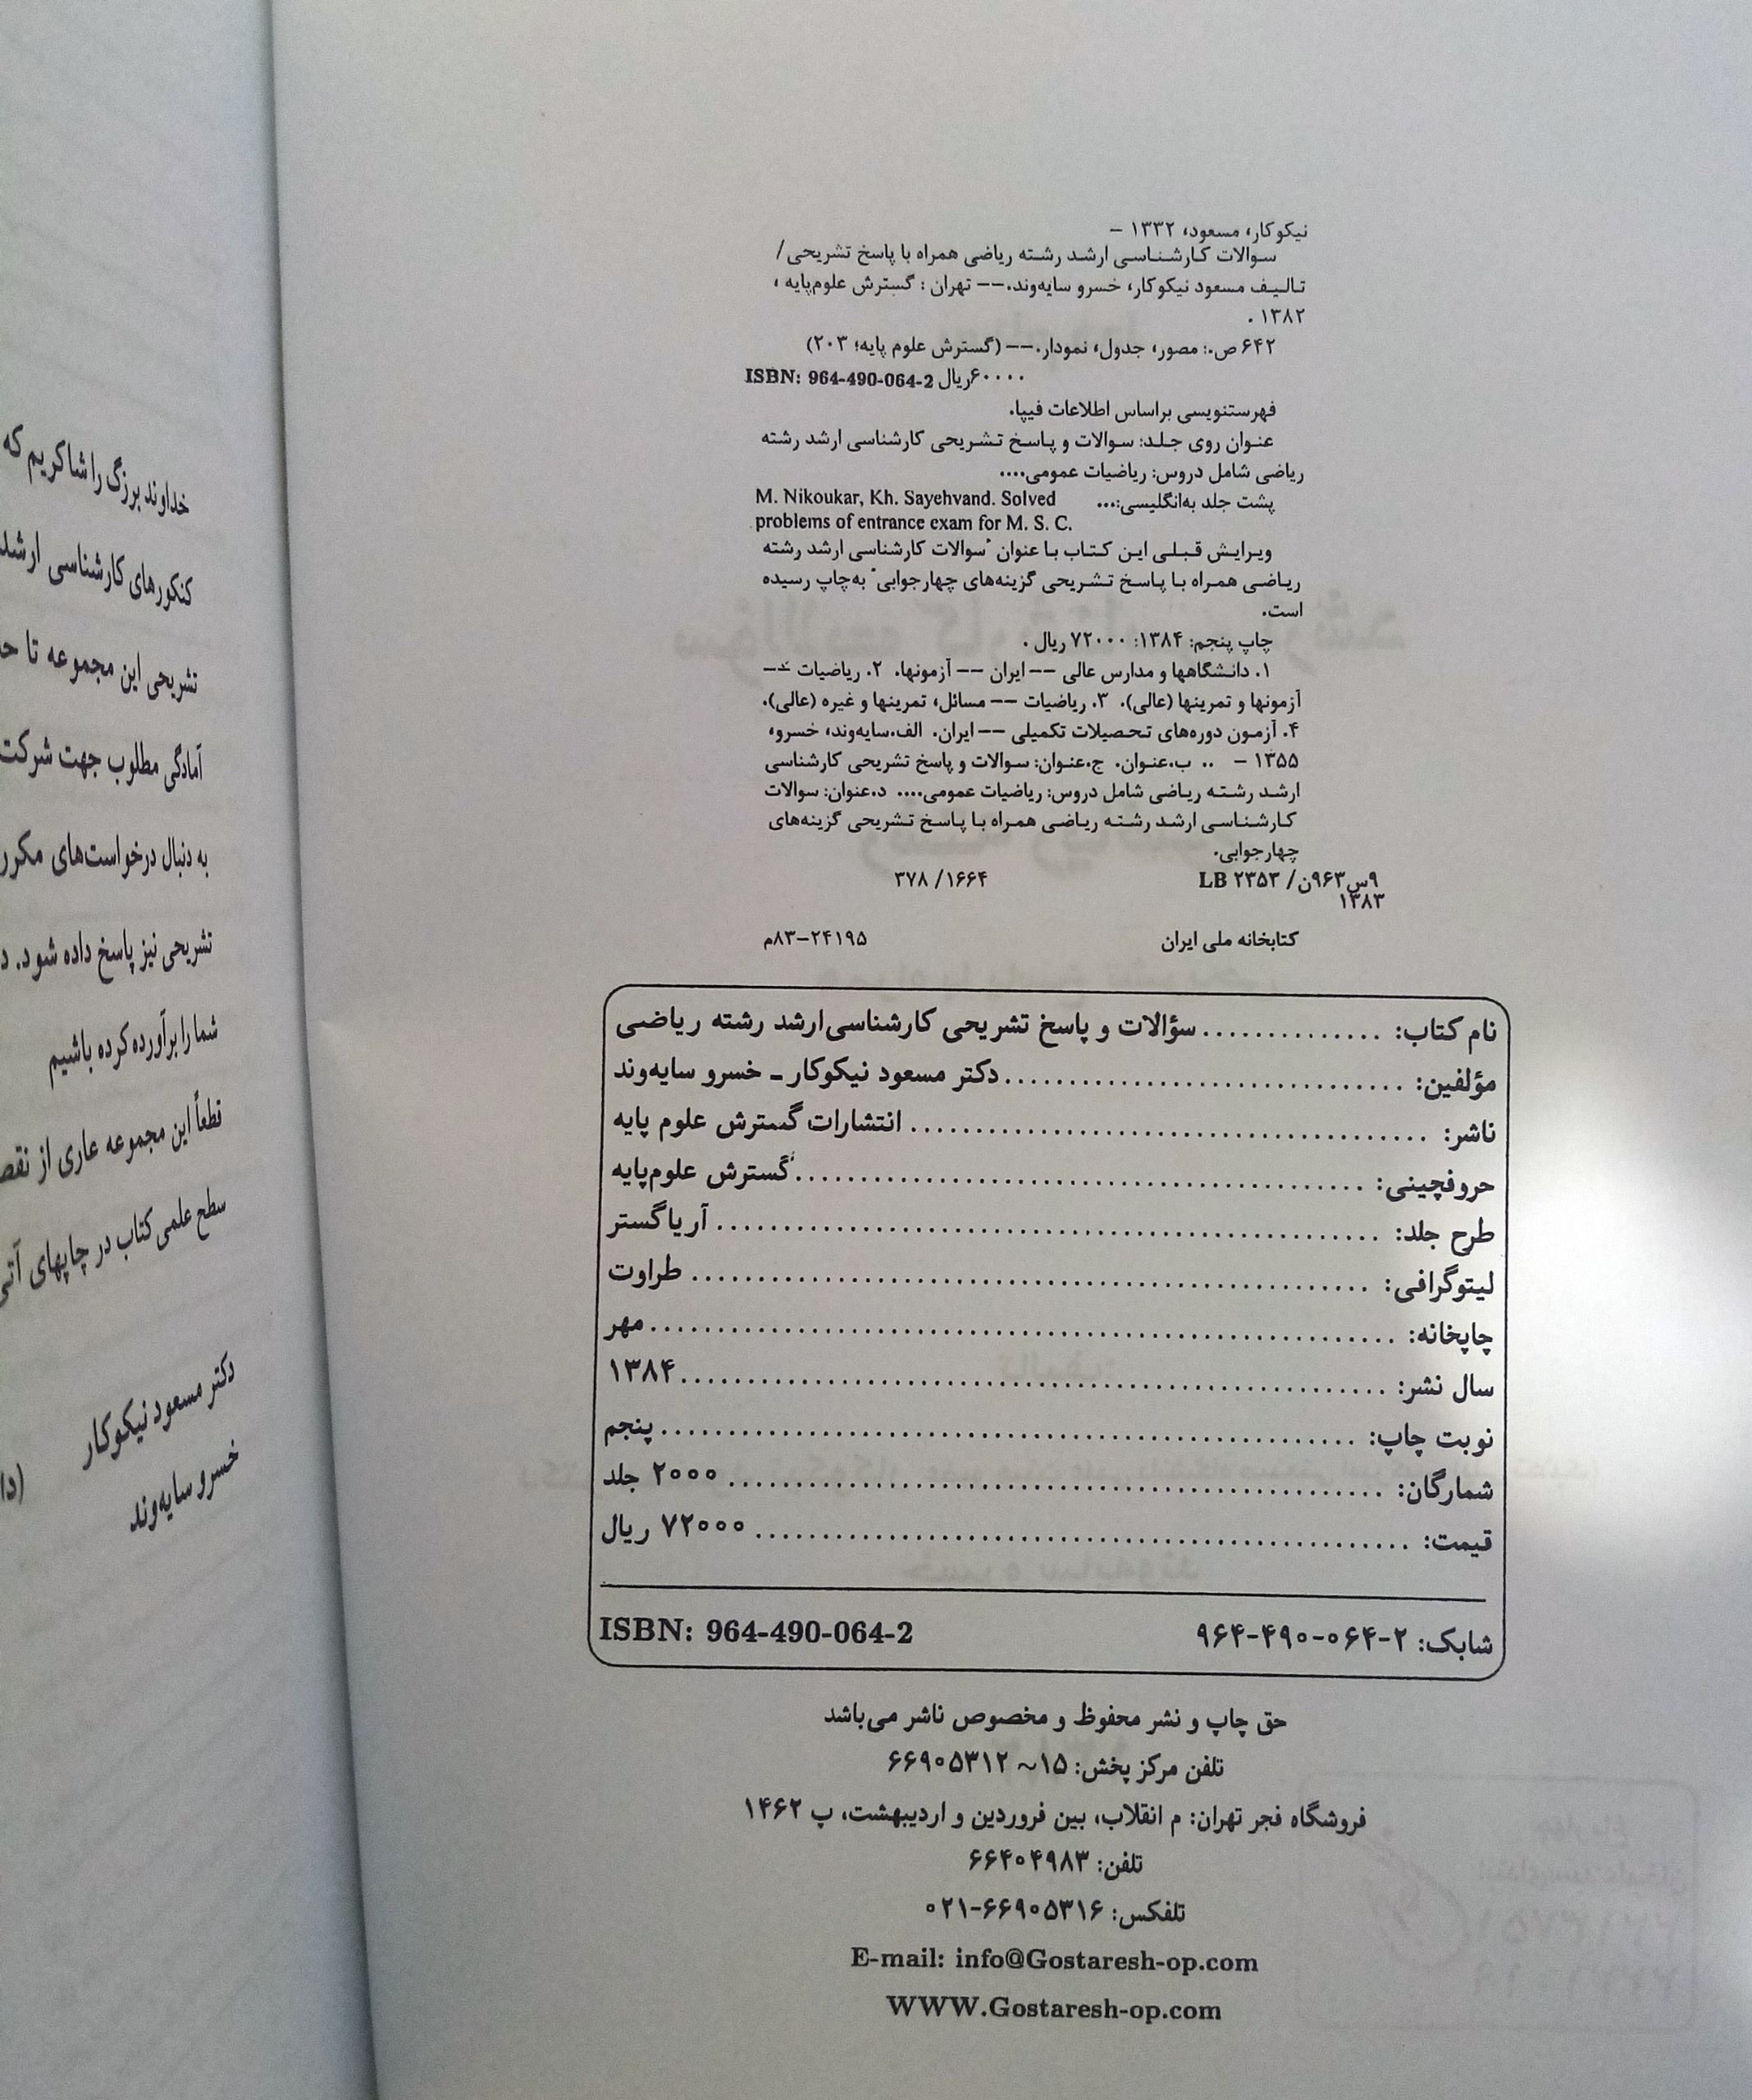 نیکوکار، مسعود، ۱۳۳۲ –
سوالات کارشناسی ارشد رشته ریاضی همراه با پاسخ تشریحی/
تالیف مسعود نیکوکار، خسرو سایه‌وند.-- تهران : گسترش علوم‌پایه ،
۱۳۸۲ .
۶۴۲ ص.: مصور، جدول، نمودار.-- (گسترش علوم پایه؛ ۲۰۳)
۶۰۰۰۰ریال ISBN: 964-490-064-2
فهرستنویسی براساس اطلاعات فیپا.
عنوان روی جلد: سوالات و پاسخ تشریحی کارشناسی ارشد رشته
ریاضی شامل دروس: ریاضیات عمومی....
پشت جلد به‌انگلیسی:... M. Nikoukar, Kh. Sayehvand. Solved
problems of entrance exam for M. S. C.
ویرایش قبلی این کتاب با عنوان "سوالات کارشناسی ارشد رشته
ریاضی همراه با پاسخ تشریحی گزینه‌های چهارجوابی" به‌چاپ رسیده
است.
چاپ پنجم: ۱۳۸۴: ۷۲۰۰۰ ریال .
۱. دانشگاهها و مدارس عالی -- ایران -- آزمونها. ۲. ریاضیات --
آزمونها و تمرینها (عالی). ۳. ریاضیات -- مسائل، تمرینها و غیره (عالی).
۴. آزمون دوره‌های تحصیلات تکمیلی -- ایران. الف.سایه‌وند، خسرو،
۱۳۵۵ – .. ب.عنوان. ج.عنوان: سوالات و پاسخ تشریحی کارشناسی
ارشد رشته ریاضی شامل دروس: ریاضیات عمومی.... د.عنوان: سوالات
کارشناسی ارشد رشته ریاضی همراه با پاسخ تشریحی گزینه‌های
چهارجوابی.
۹س۹۶۳ن/ LB ۲۳۵۳ ۳۷۸/۱۶۶۴
۱۳۸۳
کتابخانه ملی ایران ۸۳-۲۴۱۹۵م
نام کتاب: .............. سؤالات و پاسخ تشریحی کارشناسی‌ارشد رشته ریاضی
مؤلفین: .............................. دکتر مسعود نیکوکار ـ خسرو سایه‌وند
ناشر: ....................................... انتشارات گسترش علوم پایه
حروفچینی: .......................................... گسترش علوم‌پایه
طرح جلد: ................................................. آریاگستر
لیتوگرافی: .................................................. طراوت
چاپخانه: ....................................................... مهر
سال نشر: .................................................... ۱۳۸۴
نوبت چاپ: ................................................... پنجم
شمارگان: ................................................ ۲۰۰۰ جلد
قیمت: ................................................ ۷۲۰۰۰ ریال
شابک: ۲-۰۶۴-۴۹۰-۹۶۴ ISBN: 964-490-064-2
حق چاپ و نشر محفوظ و مخصوص ناشر می‌باشد
تلفن مرکز پخش: ۱۵~ ۶۶۹۰۵۳۱۲
فروشگاه فجر تهران: م انقلاب، بین فروردین و اردیبهشت، پ ۱۴۶۲
تلفن: ۶۶۴۰۴۹۸۳
تلفکس: ۶۶۹۰۵۳۱۶-۰۲۱
E-mail: info@Gostaresh-op.com
WWW.Gostaresh-op.com
خداوند بزرگ را شاکریم که
کنکورهای کارشناسی ارشد
تشریحی این مجموعه تا
آمادگی مطلوب جهت شرکت
به دنبال درخواست‌های مکرر
تشریحی نیز پاسخ داده شود.
شما را برآورده کرده باشیم
قطعاً این مجموعه عاری از
سطح علمی کتاب در چاپهای
دکتر مسعود نیکوکار
خسرو سایه‌وند